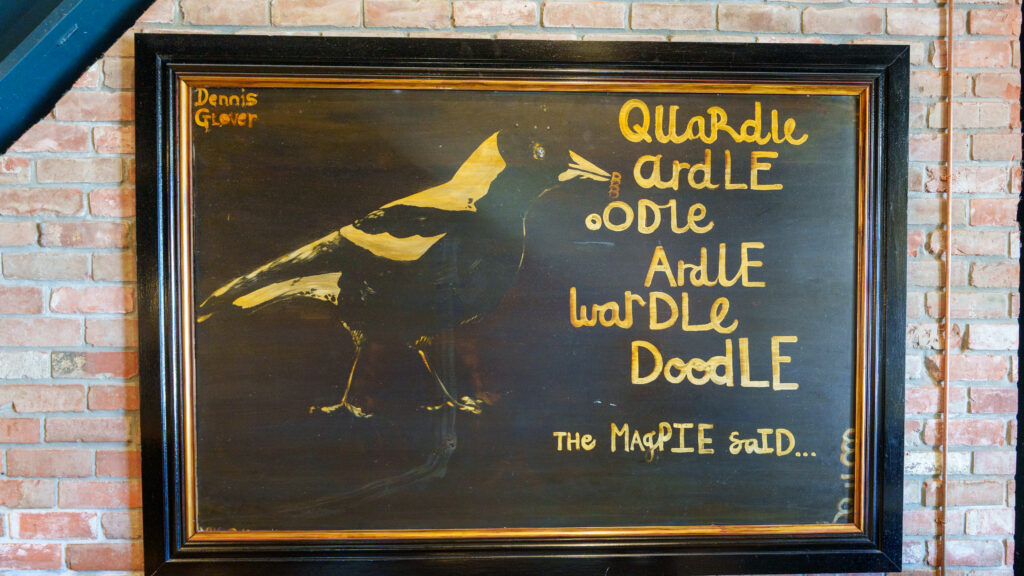 Dennis
Glover
QUaRdle
ardLE
oODle
ArdlE
warDLe
DoodLE
THe MAgPIE SaID...